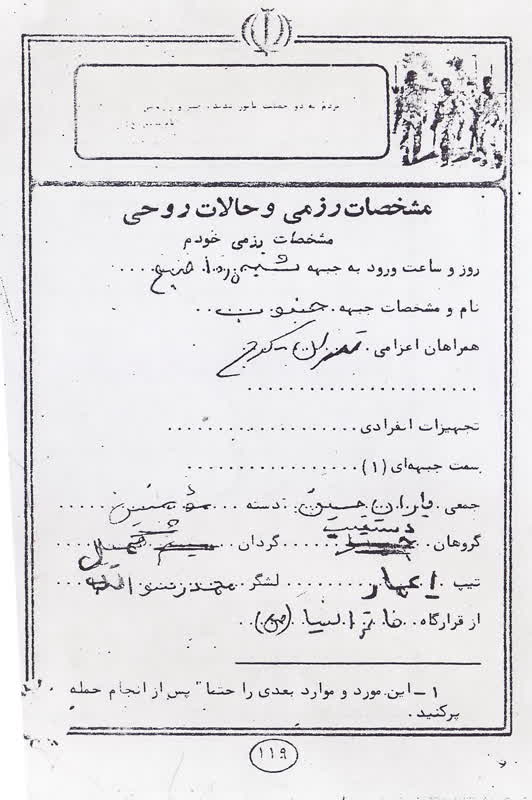 مردم به دو خصلت مأمور شدند، صبر و
مشخصات رزمی و حالات روحی
مشخصات رزمی خودم
روز و ساعت ورود به جبهه شنبه ۱۰ صبح
نام و مشخصات جبهه . جنوب
همراهان اعزامی . تهران - کرج
تجهیزات انفرادی
سمت جبهه‌ای (۱)
جمعی یاران حسین دسته مؤمنین
گروهان گردان میثم
تیپ عمار لشگر محمد رسول الله
از قرارگاه خاتم الانبیا (ص)
۱ - این مورد و موارد بعدی را حتماً پس از انجام حمله
پرکنید .
۱۱۹